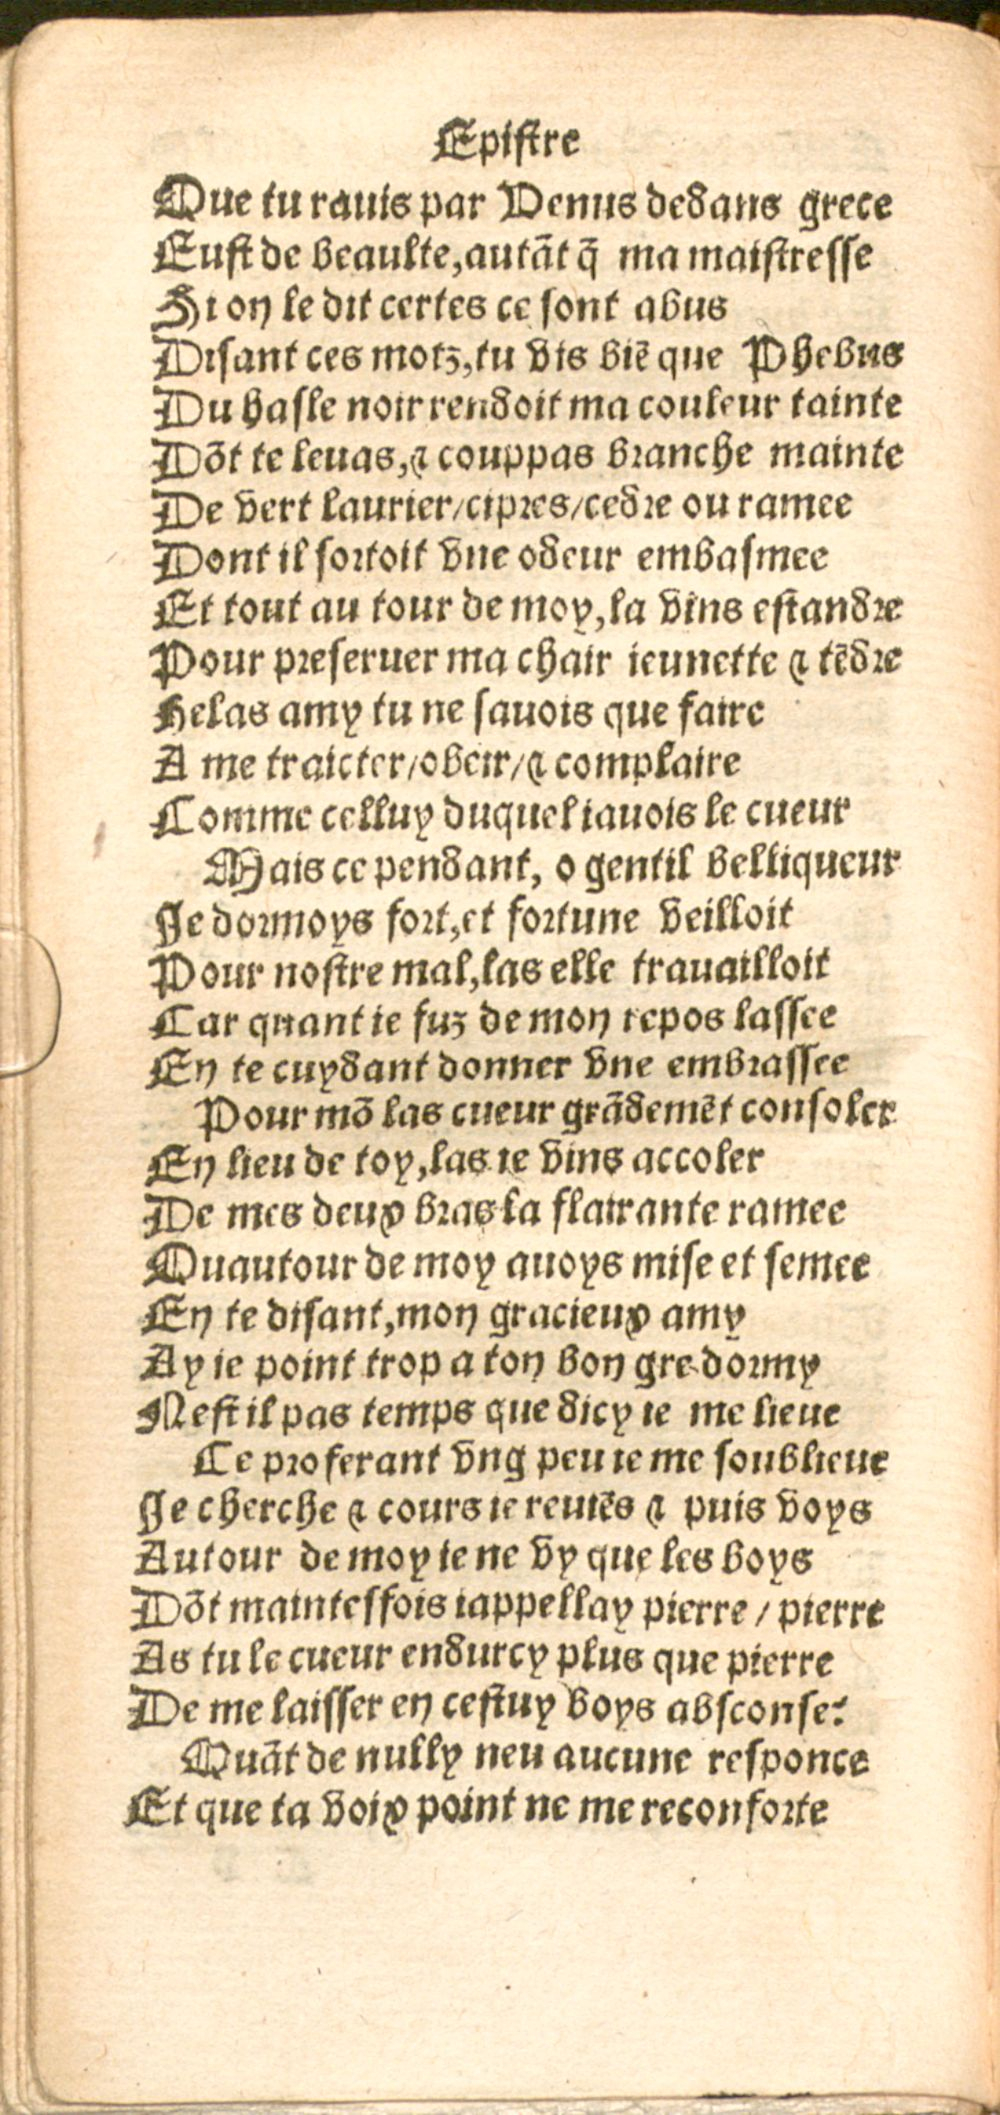 Epistre
Que tu rauis par Venus dedans grece
Eust de beaulte, autāt q̄ ma maistresse
Si on le dit certes ce sont abus
Disant ces motz, tu vis biē que Phebus
Du hasle noir rendoit ma couleur tainte
Dōt te leuas, ⁊ couppas branche mainte
De vert laurier/cipres/cedre ou ramee
Dont il sortoit vne odeur embasmee
Et tout au tour de moy, la vins estandre
Pour preseruer ma chair ieunette ⁊ tēdre
Helas amy tu ne sauois que faire
A me traicter/obeir/⁊ complaire
Comme celluy duquel iauois le cueur
Mais ce pendant, o gentil belliqueur
Je dormoys fort, et fortune veilloit
Pour nostre mal, las elle trauailloit
Car quant ie fuz de mon repos lassee
En te cuydant donner vne embrassee
Pour mō las cueur grādemēt consoler
En lieu de toy, las ie vins accoler
De mes deux bras la flairante ramee
Quautour de moy auoys mise et semee
En te disant, mon gracieux amy
Ay ie point trop a ton bon gre dormy
Nest il pas temps que dicy ie me lieue
Ce proferant vng peu ie me soublieue
Je cherche ⁊ cours ie reuiēs ⁊ puis voys
Autour de moy ie ne vy que les boys
Dōt maintesfois iappellay pierre / pierre
As tu le cueur endurcy plus que pierre
De me laisser en cestuy boys absconse?
Quāt de nully neu aucune responce
Et que ta voix point ne me reconforte